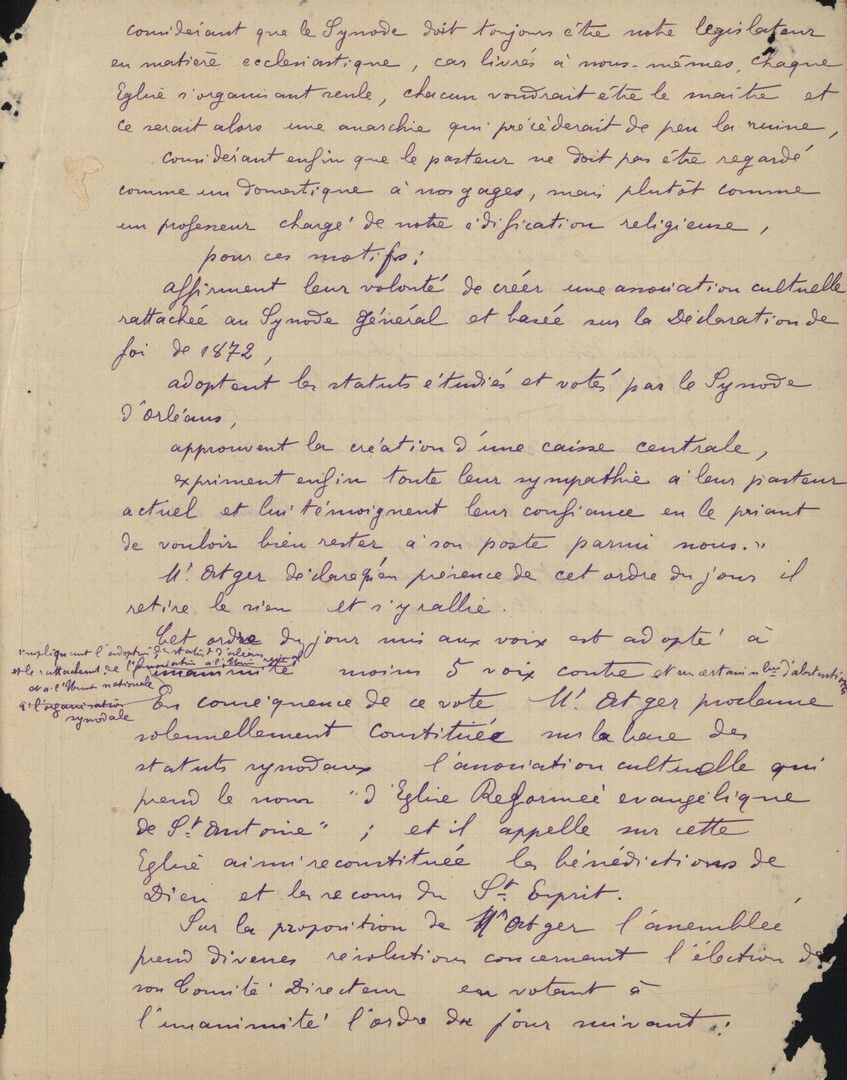 considérant que le Synode doit toujours être notre législateur
en matière ecclésiastique, car livrés à nous-mêmes, chaque
Eglise s'organisant seule, chacun voudrait être le maître et
ce serait alors une anarchie qui précéderait de peu la ruine,
considérant enfin que le pasteur ne doit pas être regardé
comme un domestique à nos gages, mais plutôt comme
un professeur chargé de notre édification religieuse,
pour ces motifs:
affirment leur volonté de créer une association cultuelle
rattachée au Synode Général et basée sur la Déclaration de
foi de 1872,
adoptent les statuts étudiés et votés par le Synode
d'Orléans,
approuvent la création d'une caisse centrale,
expriment enfin toute leur sympathie à leur pasteur
actuel et lui témoignent leur confiance en le priant
de vouloir bien rester à son poste parmi nous."
Mr. Atger déclare qu'en présence de cet ordre du jour il
retire le sien et s'y rallie.
Cet ordre du jour mis aux voix est adopté à
impliquant l'adoption des statuts d'Orléans
et le rattachemt. de l'association à l'Union
et à l'Union nationale
à l'organisation
synodale
unanimité moins 5 voix contre et un certain nbre d'abstentions
En conséquence de ce vote Mr. Atger proclame
solennellement constituée sur la base des
statuts synodaux l'association cultuelle qui
prend le nom "d'Eglise Reformeé evangélique
de St. Antoine" ; et il appelle sur cette
Eglise ainsi reconstituée les bénédictions de
Dieu et les secours du St. Esprit.
Sur la proposition de Mr Atger l'assemblée
prend diverses résolutions concernant l'élection de
son Comité Directeur en votant à
l'unanimité l'ordre du jour suivant :